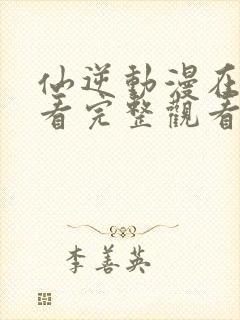 仙逆動漫在
看完整觀看
李善英